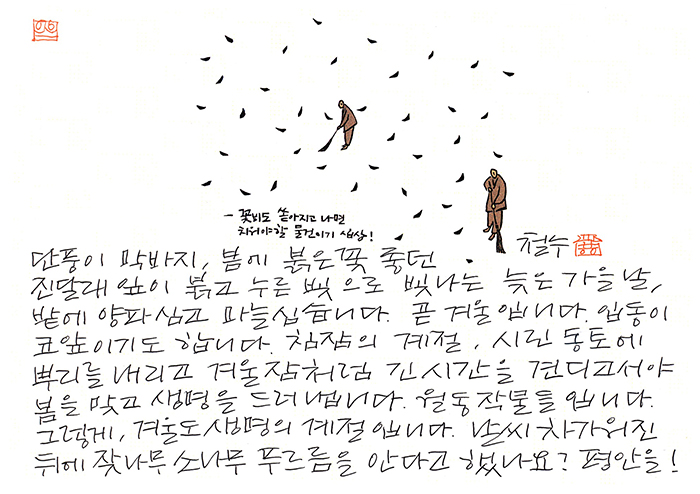 - 꽃비도 쏟아지고 나면
치워야할 물건이기 십상!
철수
단풍이 막바지, 봄에 붉은꽃 좋던
진달래 잎이 붉고 누른 빛으로 빛나는 늦은 가을날,
밭에 양파심고 마늘심습니다. 곧 겨울입니다. 입동이
코앞이기도 합니다. 참잠의 계절, 시린 동토에
뿌리를 내리고 겨울잠처럼 긴시간을 견디고서야
봄을 맞고 생명을 드러냅니다. 월동작물들입니다.
그렇게, 겨울도 생명의 계절입니다. 날씨 차가워진
뒤에 잣나무 소나무 푸르름을 안다고 했나요? 평안을!